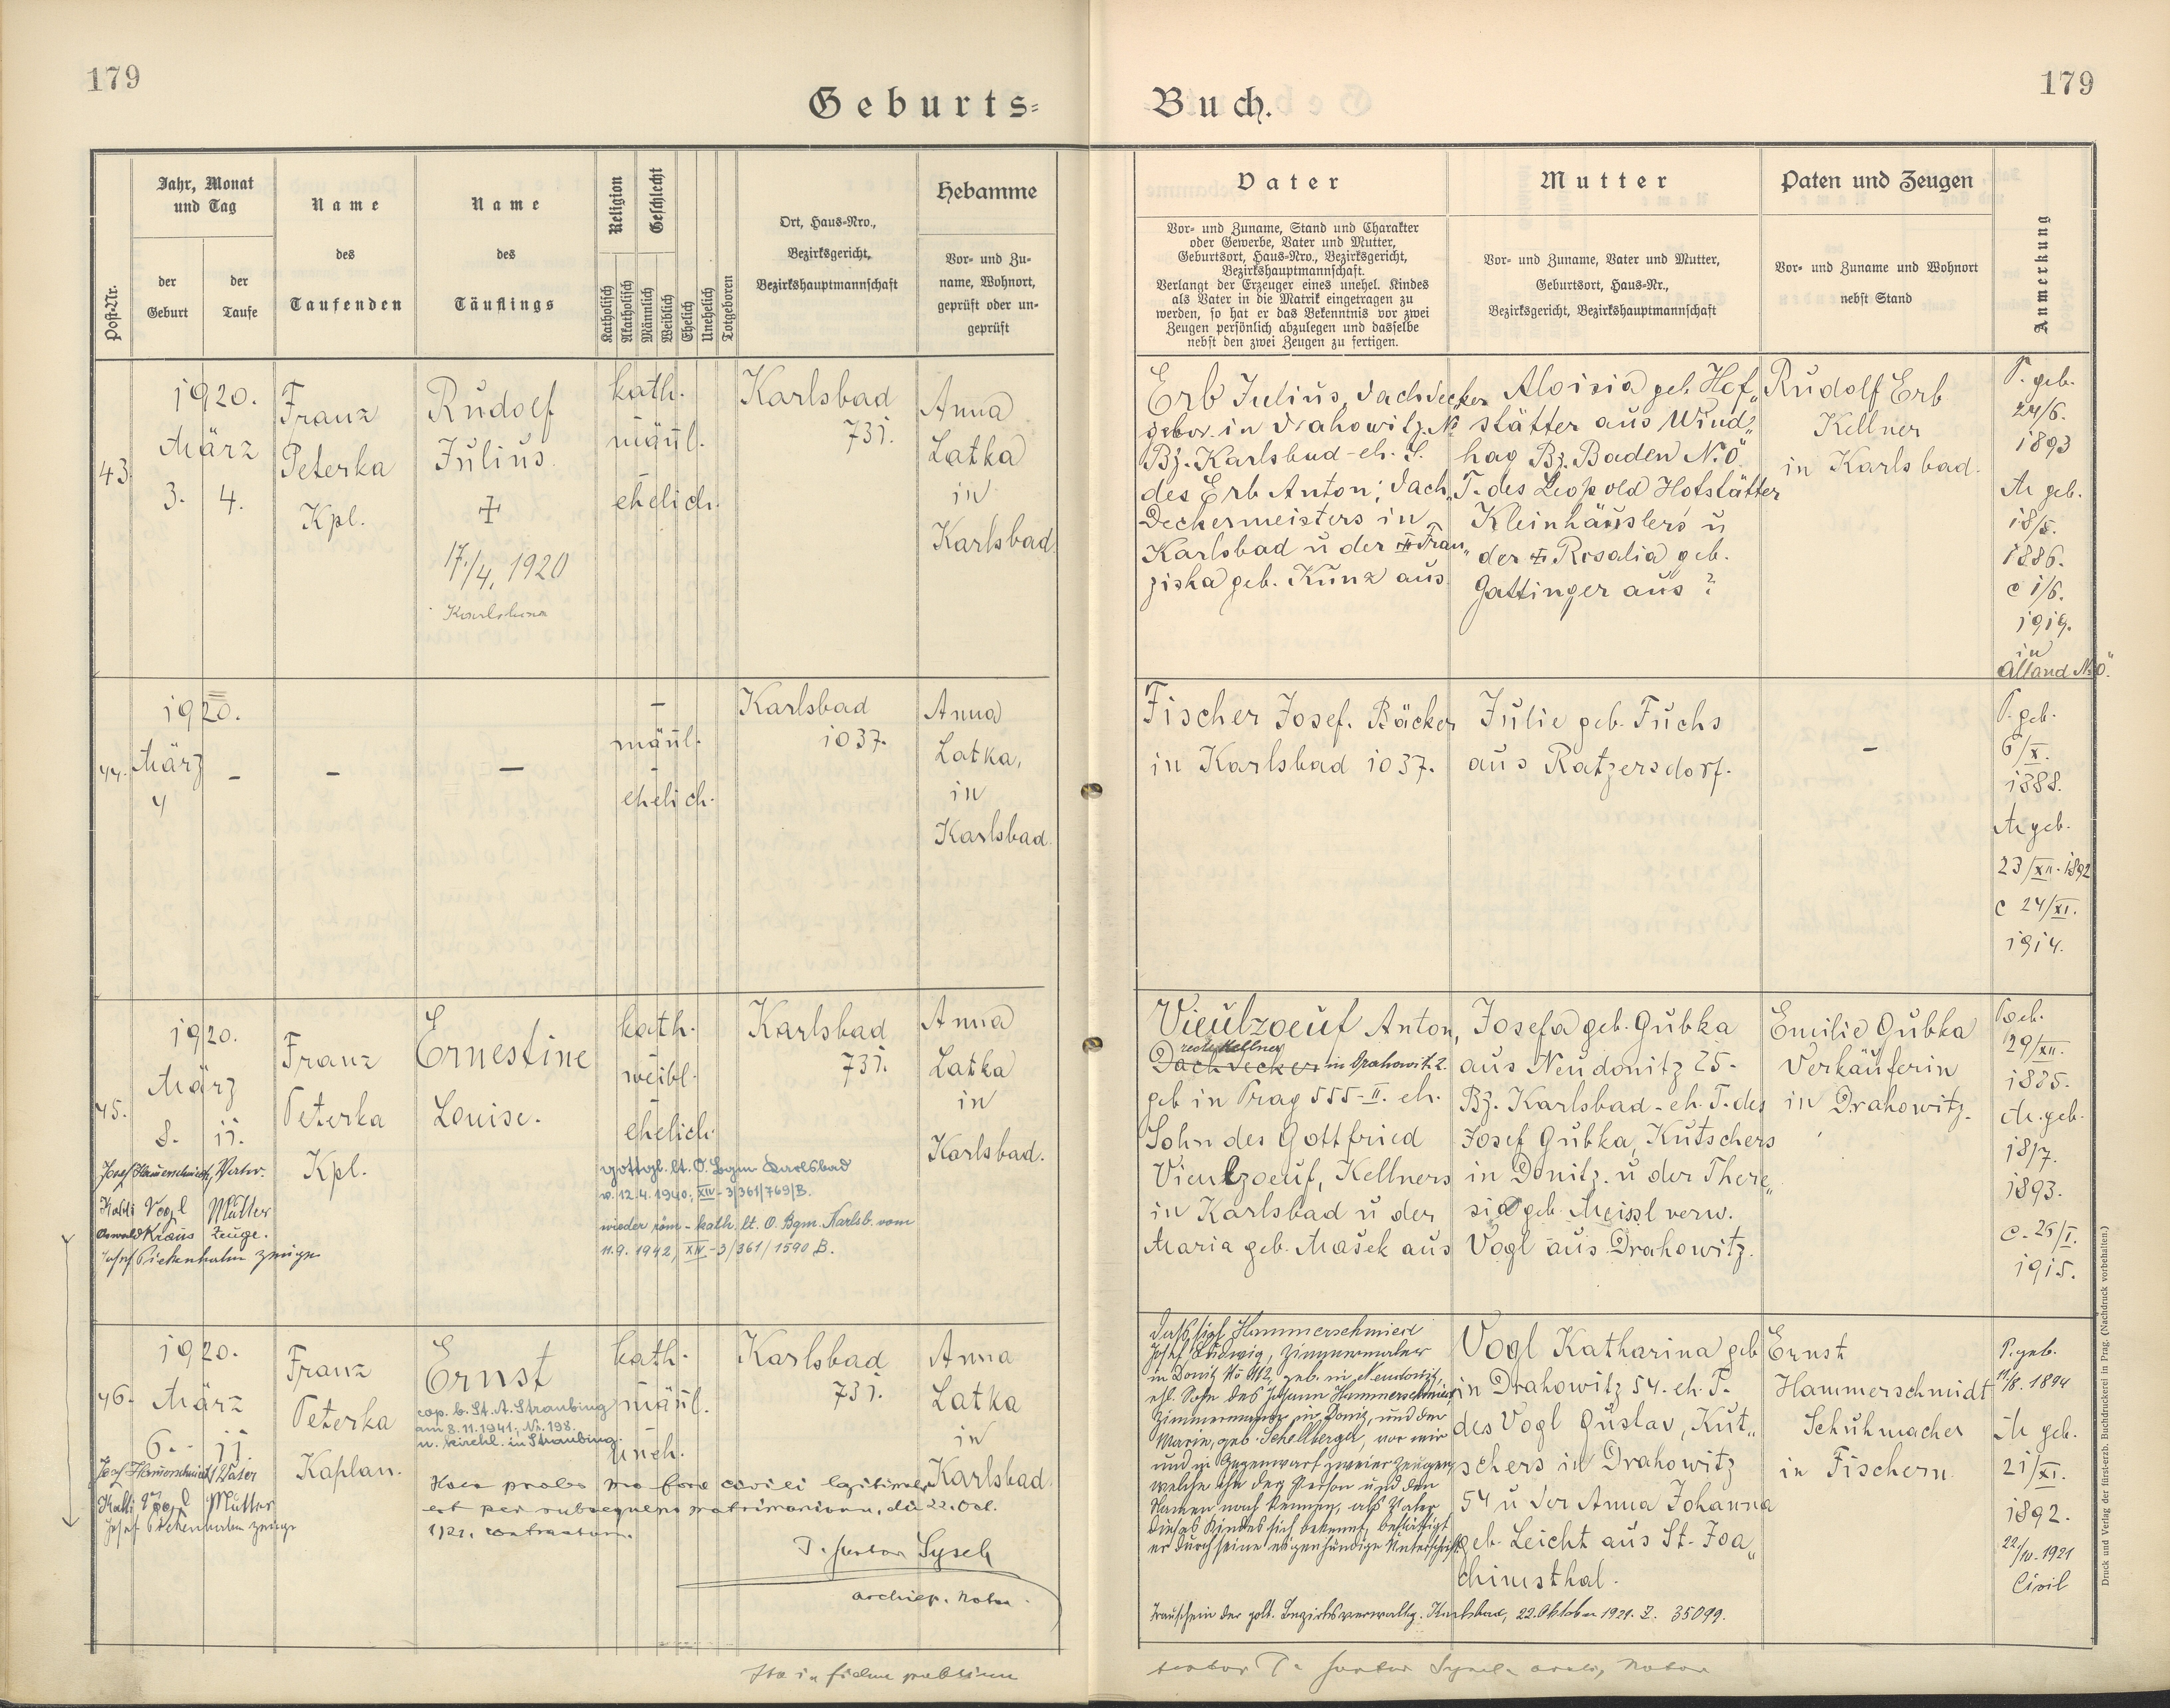 179
179
Geburts=
Buch.
Post-Nr.
Jahr, Monat
und Tag
der
Geburt
der
Taufe
Name
des
Taufenden
Name
des
Täuflings
Religion
Geschlecht
Katholisch
Akatholisch
Männlich
Weiblich
Ehelich
Unehelich
Totgeboren
Ort, Haus=Nro.,
Bezirksgericht,
Bezirkshauptmannschaft
Hebamme
Vor= und Zu=
name, Wohnort,
geprüft oder un=
geprüft
Vater
Vor= und Zuname, Stand und Charakter
oder Gewerbe, Vater und Mutter,
Geburtsort, Haus=Nro., Bezirksgericht,
Bezirkshauptmannschaft.
Verlangt der Erzeuger eines unehel. Kindes
als Vater in die Matrik eingetragen zu
werden, so hat er das Bekenntnis vor zwei
Zeugen persönlich abzulegen und dasselbe
nebst den zwei Zeugen zu fertigen.
Mutter
Vor= und Zuname, Vater und Mutter,
Geburtsort, Haus=Nr.,
Bezirksgericht, Bezirkshauptmannschaft
Paten und Zeugen
Vor= und Zuname und Wohnort
nebst Stand
Anmerkung
43.
1920.
März
3. 4.
Franz
Peterka
Kpl.
Rudolf
Julius
17./4. 1920
kath.
männl.
ehelich.
Karlsbad
731.
Anna
Latka
in
Karlsbad.
Erb Julius, Dachdecker
gebor. in Drahowitz. No
Bz. Karlsbad - eh. S.
des Erb Anton, Dach„
deckermeisters in
Karlsbad u der Fran„
ziska geb. Kunz aus
Aloisia geb. Hof„
stätter aus Wind„
hag Bz. Baden N.Ö.
T. des Leopold Hofstätter
Kleinhäuslers u
der Rosalia geb.
Gattinger aus ?
Rudolf Erb
Kellner
in Karlsbad.
P. geb.
24/6.
1893
M geb.
18/5.
1886.
c 1/6.
1919.
in
Alland N.Ö.
44.
1920.
März –
4
–
–
–
männl.
–
ehelich.
Karlsbad
1037.
Anna
Latka,
in
Karlsbad.
Fischer Josef. Bäcker
in Karlsbad 1037.
Julie geb. Fuchs
aus Ratzersdorf.
–
P. geb.
6/X.
1888.
M geb.
23/XII. 1892
c 24/XI.
1914.
45.
1920.
März
8. 11.
Josef Hamerschmied, Vater.
Kathi Vogl Mutter
Oswald Kraus Zeuge.
Franz
Peterka
Kpl.
Ernestine
Louise.
kath.
weibl.
ehelich.
gottgl. lt. O. Bgm Karlsbad
v. 12.4.1940, XIV-3/361/769/B.
wieder röm-kath. lt. O. Bgm. Karlsb. vom
11.9.1942, XIV-3/361/1590 B.
Karlsbad
731.
Anna
Latka
in
Karlsbad.
Vieulzoeuf Anton,
Kellner
Dachdecker in Drahowitz.
geb in Prag 555-II. eh.
Sohn des Gottfried
Vieulzoeuf, Kellners
in Karlsbad u der
Maria geb. Mašek aus
Josefa geb. Gubka
aus Neudonitz 25.
Bz. Karlsbad - eh. T. des
Josef Gubka, Kutschers
in Donitz. u der There„
sia geb. Meissl verw.
Vogl aus Drahowitz.
Emilie Gubka
Verkäuferin
in Drahowitz.
P. geb.
29/XII.
1885.
M. geb.
18/7.
1893.
c. 25/I.
1915.
46.
1920.
März
6. 11.
Josef Hamerschmied Vater
Kathi Vogl Mutter
Franz
Peterka
Kaplan.
Ernst
cop. b. St. A. Straubing
am 8.11.1941, Nr. 198.
u. kirchl. in Straubing.
kath.
männl.
uneh.
Karlsbad
731.
Anna
Latka
in
Karlsbad.
Haec proles pro foro civili legitima
est per subsequens matrimonium, die 22. Oct.
1921. contractum.
Sysel
archiep. Notar.
Josef Ludwig, Zimmermaler
in Donitz No 112, geb. in Neudonitz,
ehl. Sohn des Johann Hammerschmied,
Zimmermanns in Donitz, und der
Marie, geb. Schellberger, vor mir
und in Gegenwart zweier Zeugen,
welche ihn der Person und den
Namen nach kennen, als Vater
dieses Kindes sich bekennt, bestättigt
er durch seine eigenhändige Unterschrift.
Vogl Katharina geb
in Drahowitz 54. eh. T.
des Vogl Gustav, Kut„
schers in Drahowitz
54 u der Anna Johanna
geb. Leicht aus St. Joa„
chimsthal.
Ernst
Hammerschmidt
Schuhmacher
in Fischern
P. geb.
11/8. 1894
M geb.
21/XI.
1892.
22/10. 1921
Civil
Trauschein der polt. Bezirksverwaltg. Karlsbad, 22. Oktober 1921. Z. 35099.
Ita in fidem publicam
Druck und Verlag der fürst-erzb. Buchdruckerei in Prag. (Nachdruck vorbehalten.)